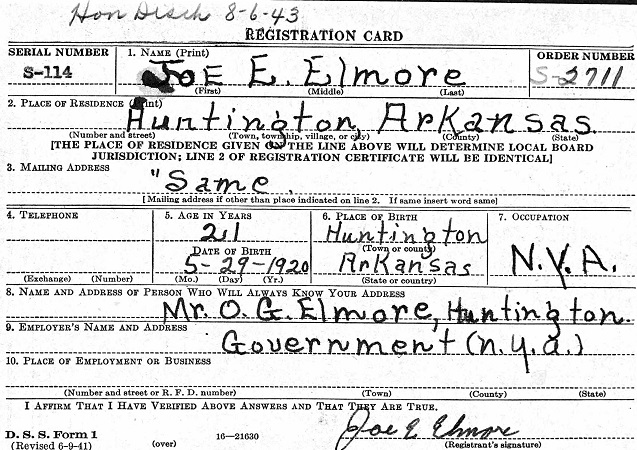 Hon Disch 8-6-43
REGISTRATION CARD
SERIAL NUMBER 1. NAME (Print) ORDER NUMBER
S-114 JOE E. Elmore S-2711
(First) (Middle) (Last)
2. PLACE OF RESIDENCE (Print)
Huntington, Arkansas
(Number and street) (Town, township, village, or city) (County) (State)
[THE PLACE OF RESIDENCE GIVEN ON THE LINE ABOVE WILL DETERMINE LOCAL BOARD
JURISDICTION; LINE 2 OF REGISTRATION CERTIFICATE WILL BE IDENTICAL]
3. MAILING ADDRESS
"Same.
[Mailing address if other than place indicated on line 2. If same insert word same]
4. TELEPHONE 5. AGE IN YEARS 6. PLACE OF BIRTH 7. OCCUPATION
21 Huntington
DATE OF BIRTH (Town or county)
5-29-1920 Arkansas N.Y.A.
(Exchange) (Number) (Mo.) (Day) (Yr.) (State or country)
8. NAME AND ADDRESS OF PERSON WHO WILL ALWAYS KNOW YOUR ADDRESS
Mr. O. G. Elmore, Huntington.
9. EMPLOYER'S NAME AND ADDRESS
Government (n.y.a.)
10. PLACE OF EMPLOYMENT OR BUSINESS
(Number and street or R. F. D. number) (Town) (County) (State)
I AFFIRM THAT I HAVE VERIFIED ABOVE ANSWERS AND THAT THEY ARE TRUE.
Joe E Elmore
D. S. S. Form 1
(Revised 6-9-41) (over) 16—21630 (Registrant's signature)